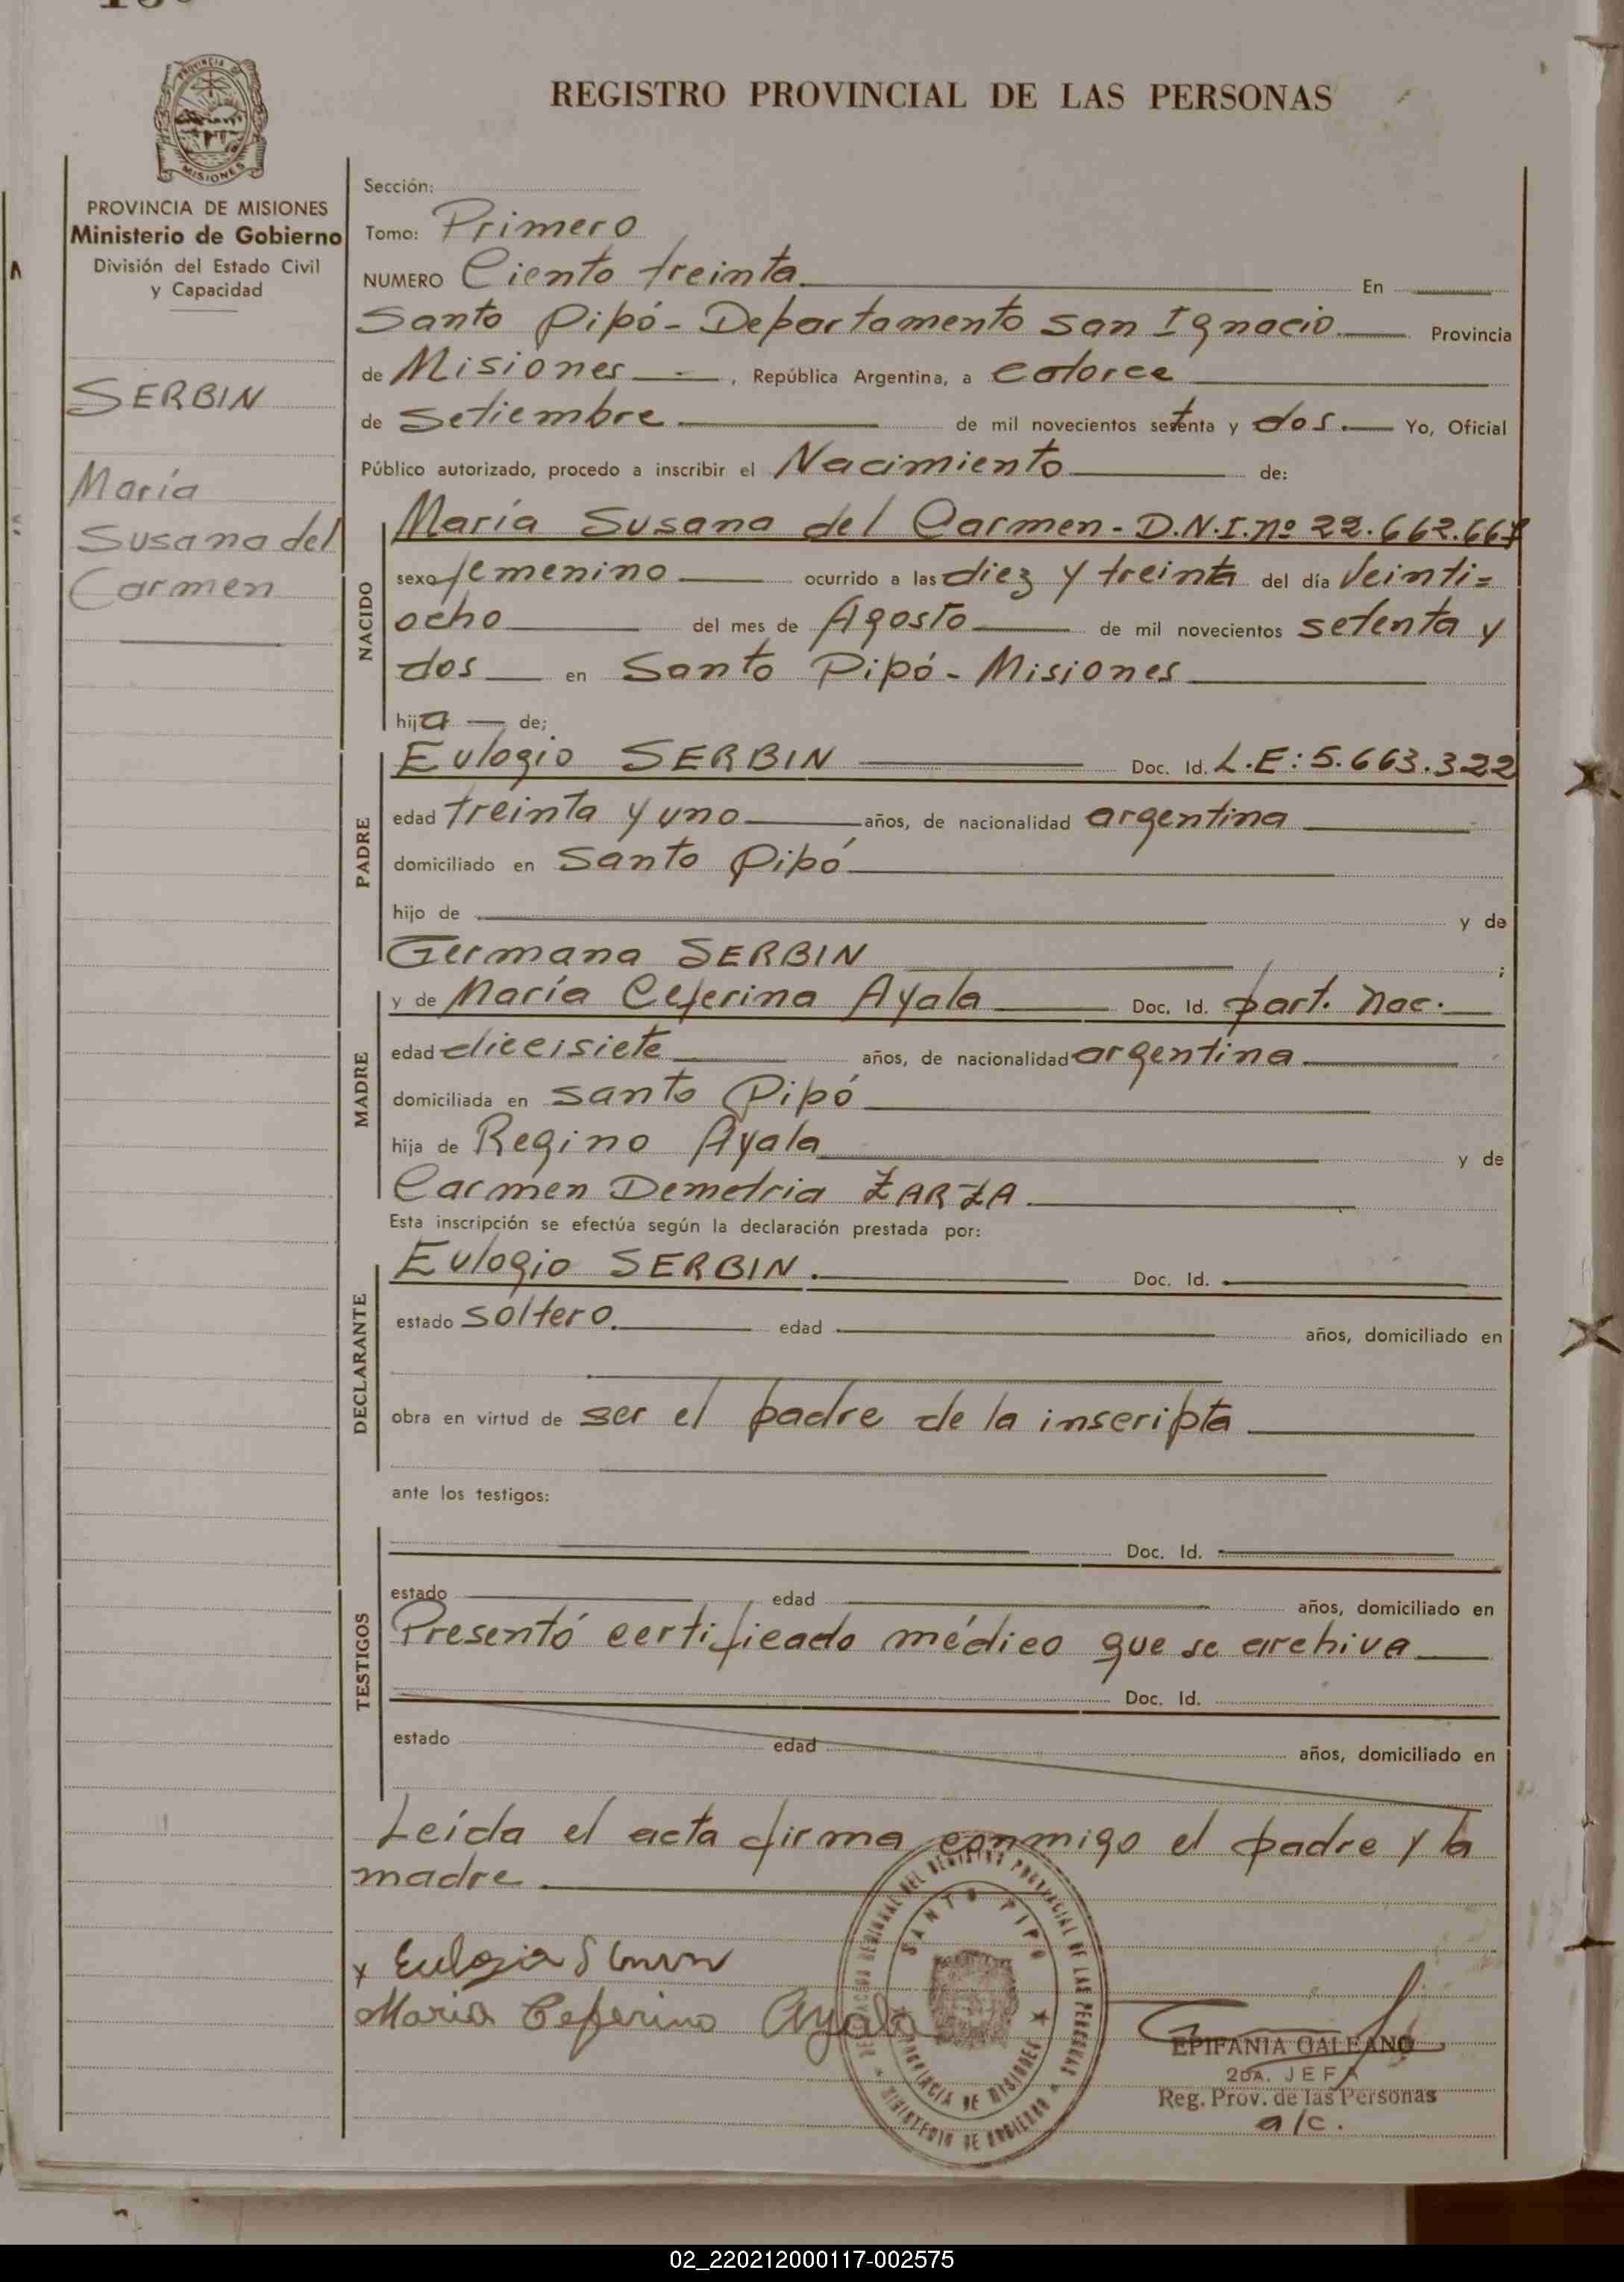 REGISTRO PROVINCIAL DE LAS PERSONAS
PROVINCIA DE MISIONES
Ministerio de Gobierno
División del Estado Civil
y Capacidad
SERBIN
María
Susana del
Carmen
Sección:
Tomo: Primero
NUMERO Ciento treinta. En
Santo Pipó - Departamento San Ignacio Provincia
de Misiones , República Argentina, a catorce
de Setiembre de mil novecientos setenta y dos. Yo, Oficial
Público autorizado, procedo a inscribir el Nacimiento de:
NACIDO
María Susana del Carmen - D.N.I. nº
sexo femenino ocurrido a las diez y treinta del día veinti=
ocho del mes de Agosto de mil novecientos setenta y
dos en Santo Pipó - Misiones
hija de;
PADRE
Eulogio SERBIN Doc. Id. L.E: 5.663.322
edad treinta y uno años, de nacionalidad argentina
domiciliado en Santo Pipó
hijo de y de
Germana SERBIN ;
MADRE
y de María Ceferina Ayala Doc. Id. part. nac.
edad diecisiete años, de nacionalidad argentina
domiciliada en santo Pipó
hija de Regino Ayala y de
Carmen Demetria ZARZA
Esta inscripción se efectúa según la declaración prestada por:
DECLARANTE
Eulogio SERBIN. Doc. Id.
estado soltero. edad años, domiciliado en
obra en virtud de ser el padre de la inscripta
ante los testigos:
TESTIGOS
Doc. Id.
estado edad años, domiciliado en
Presentó certificado médico que se archiva
Doc. Id.
estado edad años, domiciliado en
Leída el acta firma conmigo el padre y la
madre
x Eulogio
Maria Ceferina Ayala
SANTO PIPO
PROVINCIA DE MISIONES
MINISTERIO DE GOBIERNO
EPIFANIA GALEANO
2DA. JEFA
Reg. Prov. de las Personas
a/c.
02_220212000117-002575